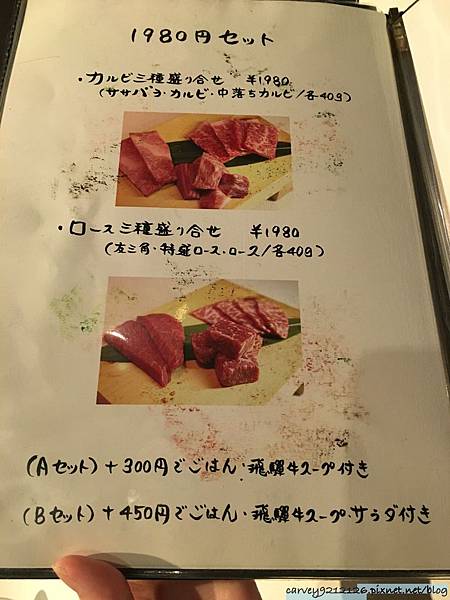 1980円セット
・カルビ三種盛り合せ ¥1980
(ササバラ・カルビ・中落ちカルビ/各40g)
・ロース三種盛り合せ ¥1980
(友三角・特盛ロース・ロース/各40g)
(Aセット)+300円でごはん・飛騨牛スープ付き
(Bセット)+450円でごはん・飛騨牛スープ・サラダ付き
carvey9212126.pixnet.net/blog